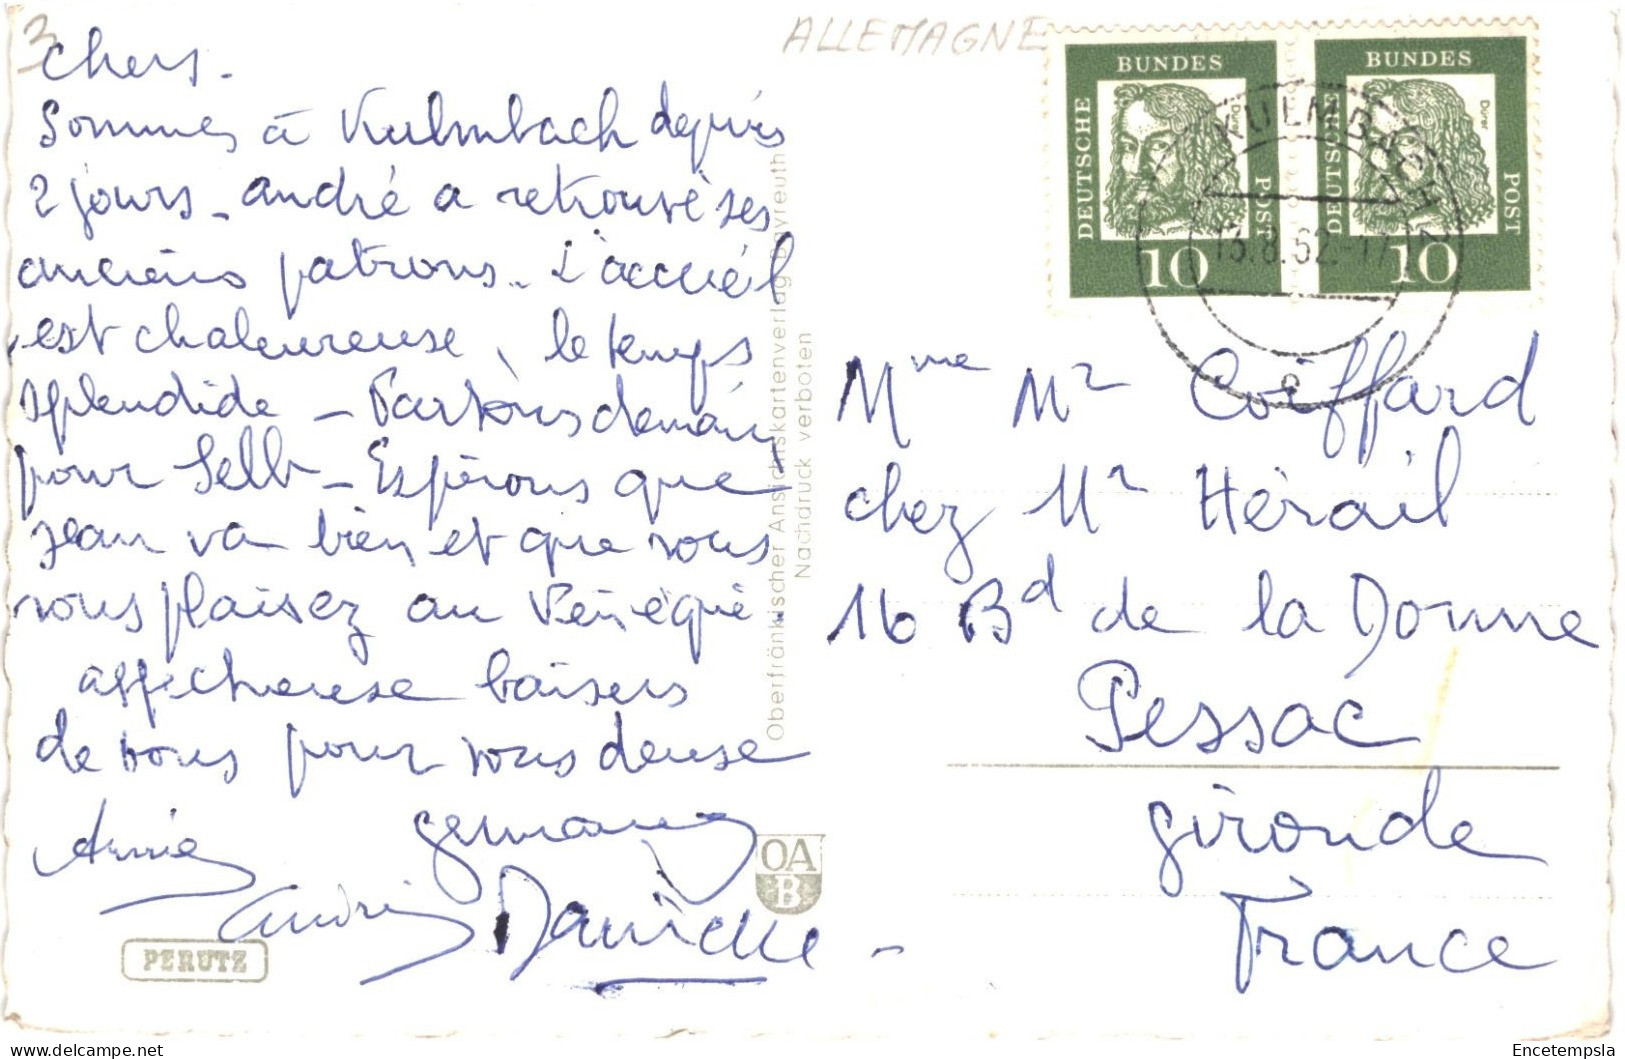 3
chers.
Sommes à Kulmbach depuis
2 jours - andré a retrouvé ses
anciens patrons.. L'accueil
est chaleureuse, le temps
splendide - Partons demain
pour Selb - Espérons que
jean va bien et que vous
vous plaisez au
affectueuse baisers
de nous pour vous deuse
Annie germany
André Danielle -
PERUTZ
Oberfränkischer Ansichtskartenverlag Bayreuth
Nachdruck verboten
OA
B
ALLEMAGNE
BUNDES
DEUTSCHE
POST
Dürer
10
BUNDES
DEUTSCHE
POST
Dürer
10
KULMBACH 1
13.8.62.-17
e
Mme Mr Coiffard
chez Mr Hérail
16 Bd de la Donne
Pessac
gironde
France
Encetempsla